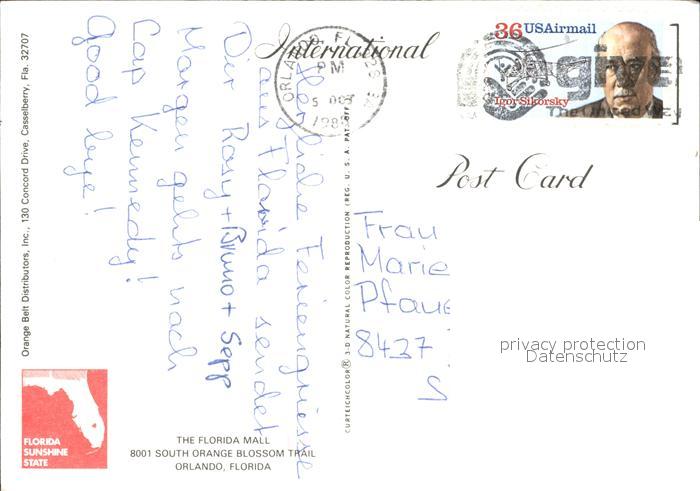 International
Post Card
ORLANDO, FL
PM
5 OCT
36 USAirmail
Igor Sikorsky
give
The United Way
Herzliche Feriengrüsse
aus Florida sendet
Dir Rosy + Bruno + Sepp
Morgen gehts nach
Cap Kennedy!
Good bye!
Frau
Marie
Pfaue
8437
S
privacy protection
Datenschutz
CURTEICHCOLOR® 3-D NATURAL COLOR REPRODUCTION (REG. U.S.A. PAT. OFF.)
Orange Belt Distributors, Inc., 130 Concord Drive, Casselberry, Fla. 32707
FLORIDA
SUNSHINE
STATE
THE FLORIDA MALL
8001 SOUTH ORANGE BLOSSOM TRAIL
ORLANDO, FLORIDA